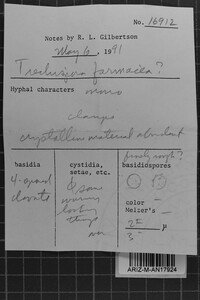 No. 16912
Notes by R. L. Gilbertson
May 6, 1991
Trechispora farinacea?
Hyphal characters mono
clamps
crystalline material abundant
basidia
4-spored
clavate
cystidia,
setae, etc.
some
looking
things
basidiospores
finely rough?
color -
Melzer's -
3 µ
ARIZ-M-AN17924